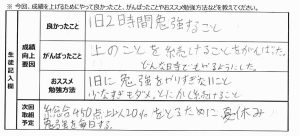 ※ 今回、成績を上げるためにやって良かったこと、がんばったことやおススメ勉強方法などを教えてください。
生徒記入欄
成績向上要因
良かったこと
1日2時間勉強すること
がんばったこと
上のことを続けることをがんばった。
どんな日でもやるようにした。
おススメ勉強方法
1日に勉強をやりすぎないこと
少なすぎもダメ。とにかく続けること
次回取組予定
総合450点以上20%をとるために夏休み
勉強を毎日する。